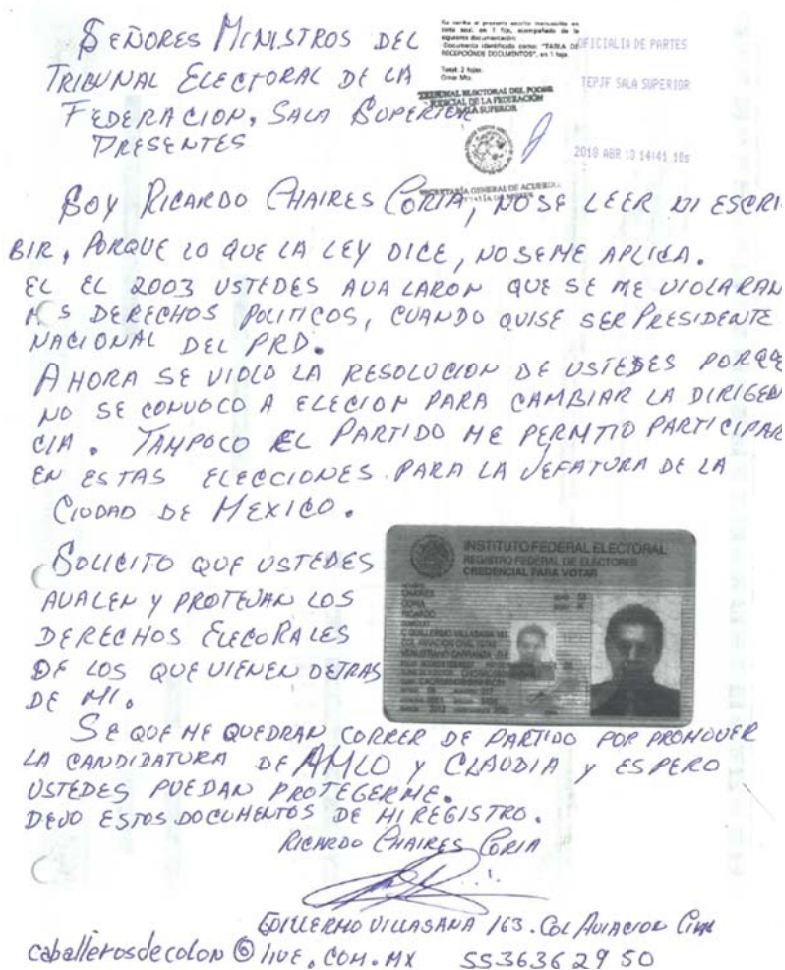 SEÑORES MINISTROS DEL
TRIBUNAL ELECTORAL DE LA
FEDERACION, SALA SUPERIOR
PRESENTES
Se recibe el presente escrito manuscrito en
tinta azul, en 1 foja, acompañado de la
siguiente documentación:
-Documento identificado como: "TABLA DE
RECEPCIÓNDE DOCUMENTOS", en 1 foja.
Total: 2 fojas.
Omar Mtz.
OFICIALIA DE PARTES
TEPJF SALA SUPERIOR
2018 ABR 13 14:41 10s
TRIBUNAL ELECTORAL DEL PODER
JUDICIAL DE LA FEDERACIÓN
SALA SUPERIOR
SECRETARÍA GENERAL DE ACUERDOS
SOY RICARDO CHAIRES CORIA, NO SE LEER NI ESCRI
BIR, PORQUE LO QUE LA LEY DICE, NO SEME APLICA.
EL EL 2003 USTEDES AVALARON QUE SE ME VIOLARAN
MIS DERECHOS POLITICOS, CUANDO QUISE SER PRESIDENTE
NACIONAL DEL PRD.
AHORA SE VIOLO LA RESOLUCION DE USTEDES PORQUE
NO SE CONVOCO A ELECION PARA CAMBIAR LA DIRIGEN
CIA. TAMPOCO EL PARTIDO ME PERMITIO PARTICIPAR
EN ESTAS ELECCIONES PARA LA JEFATURA DE LA
CIUDAD DE MEXICO.
SOLICITO QUE USTEDES
AVALEN Y PROTEJAN LOS
DERECHOS ELECORALES
DE LOS QUE VIENEN DETRAS
DE MI.
INSTITUTO FEDERAL ELECTORAL
REGISTRO FEDERAL DE ELECTORES
CREDENCIAL PARA VOTAR
NOMBRE
CHAIRES
CORIA
RICARDO
DOMICILIO
C GUILLERMO VILLASANA 163
COL AVIACION CIVIL
VENUSTIANO CARRANZA
SE QUE ME QUEDRAN CORRER DE PARTIDO POR PROMOVER
LA CANDIDATURA DE AMLO Y CLAUDIA Y ESPERO
USTEDES PUEDAN PROTEGERME.
DEJO ESTOS DOCUMENTOS DE MI REGISTRO.
RICARDO CHAIRES CORIA
GUILLERMO VILLASANA 163. COL AVIACION CIVIL
caballerosdecolon@live.com.mx 5536362950